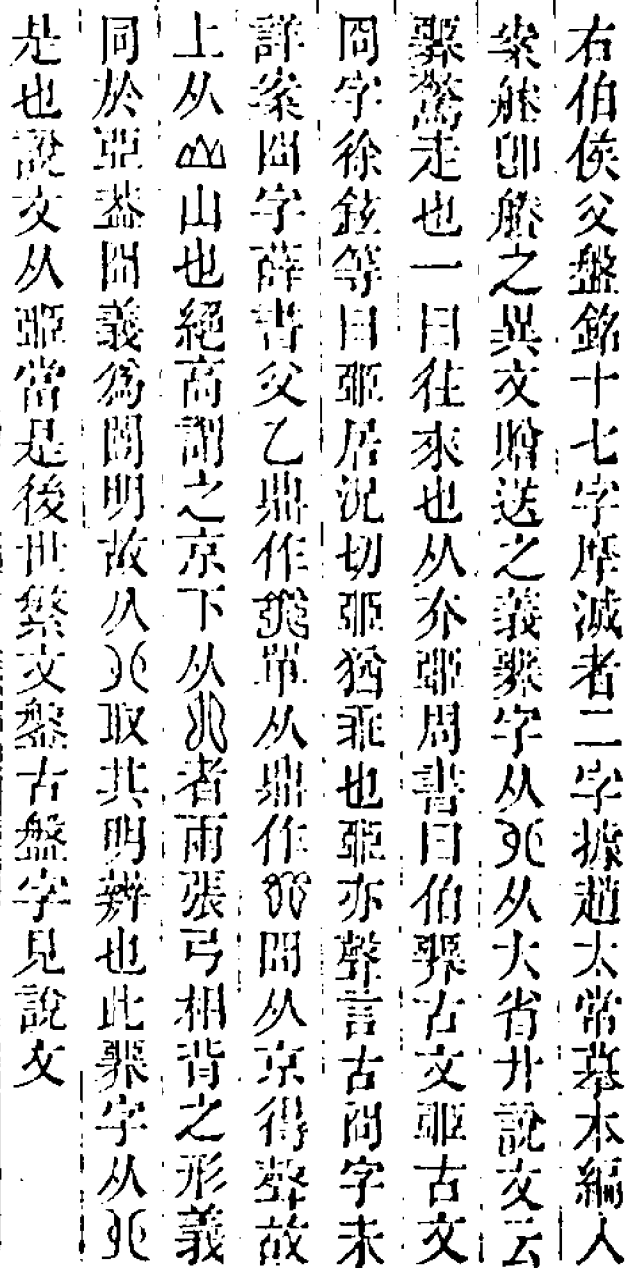 右伯侯父盤銘十七字摩滅者二字據趙太常摹本編入
案䑣卽䑣之異文贈送之義字从从大省廾說文云
驚走也一曰往來也从夰周書曰伯古文古文
冏字徐鉉等曰居況切猶乖也亦聲言古冏字未
詳案冏字薛書父乙鼎作單从鼎作冏从京得聲故
上从山也絕高謂之京下从者兩張弓相背之形義
同於葢冏義爲闓明故从取其明辨也此字从
是也說文从當是後世繁文古盤字見說文